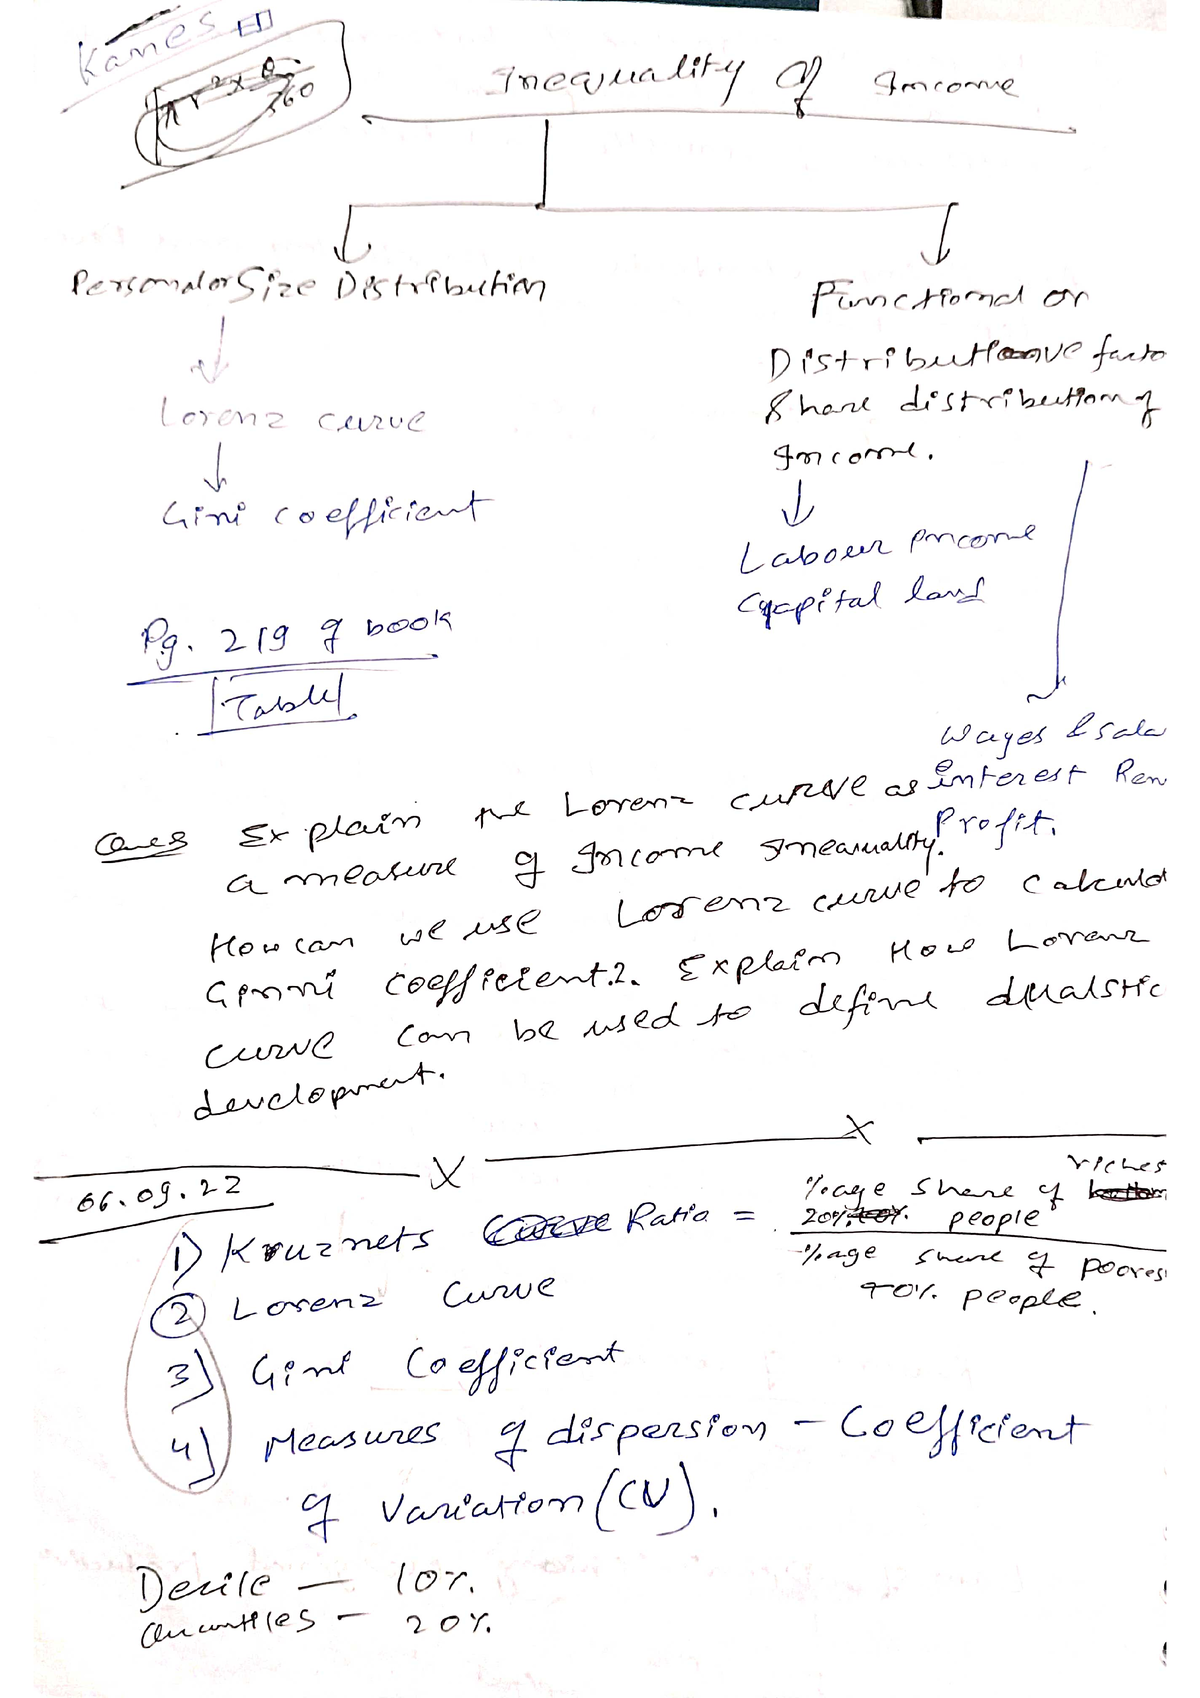 Kanes
πr² x θ/360
Inequality of Income
Personal or Size Distribution
Lorenz curve
Gini coefficient
Pg. 219 of book
Table
Functional or
Distributive facto
Share distribution of
Income.
Labour income
Capital land
Wages & Sala
interest Ren
Profit.
Ques Explain the Lorenz curve as
a measure of Income Inequality.
How can we use Lorenz curve to calculat
Ginni coefficient.2. Explain How Lorenz
curve can be used to define dualstic
development.
06.09.22
1) Kruznets Ratio = %age share of riches
20% people
%age share of poores
40% people.
2 Lorenz Curve
3) Gini Coefficient
4) Measures of dispersion - Coefficient
of Variation (CV).
Decile - 10%.
Quantiles - 20%.